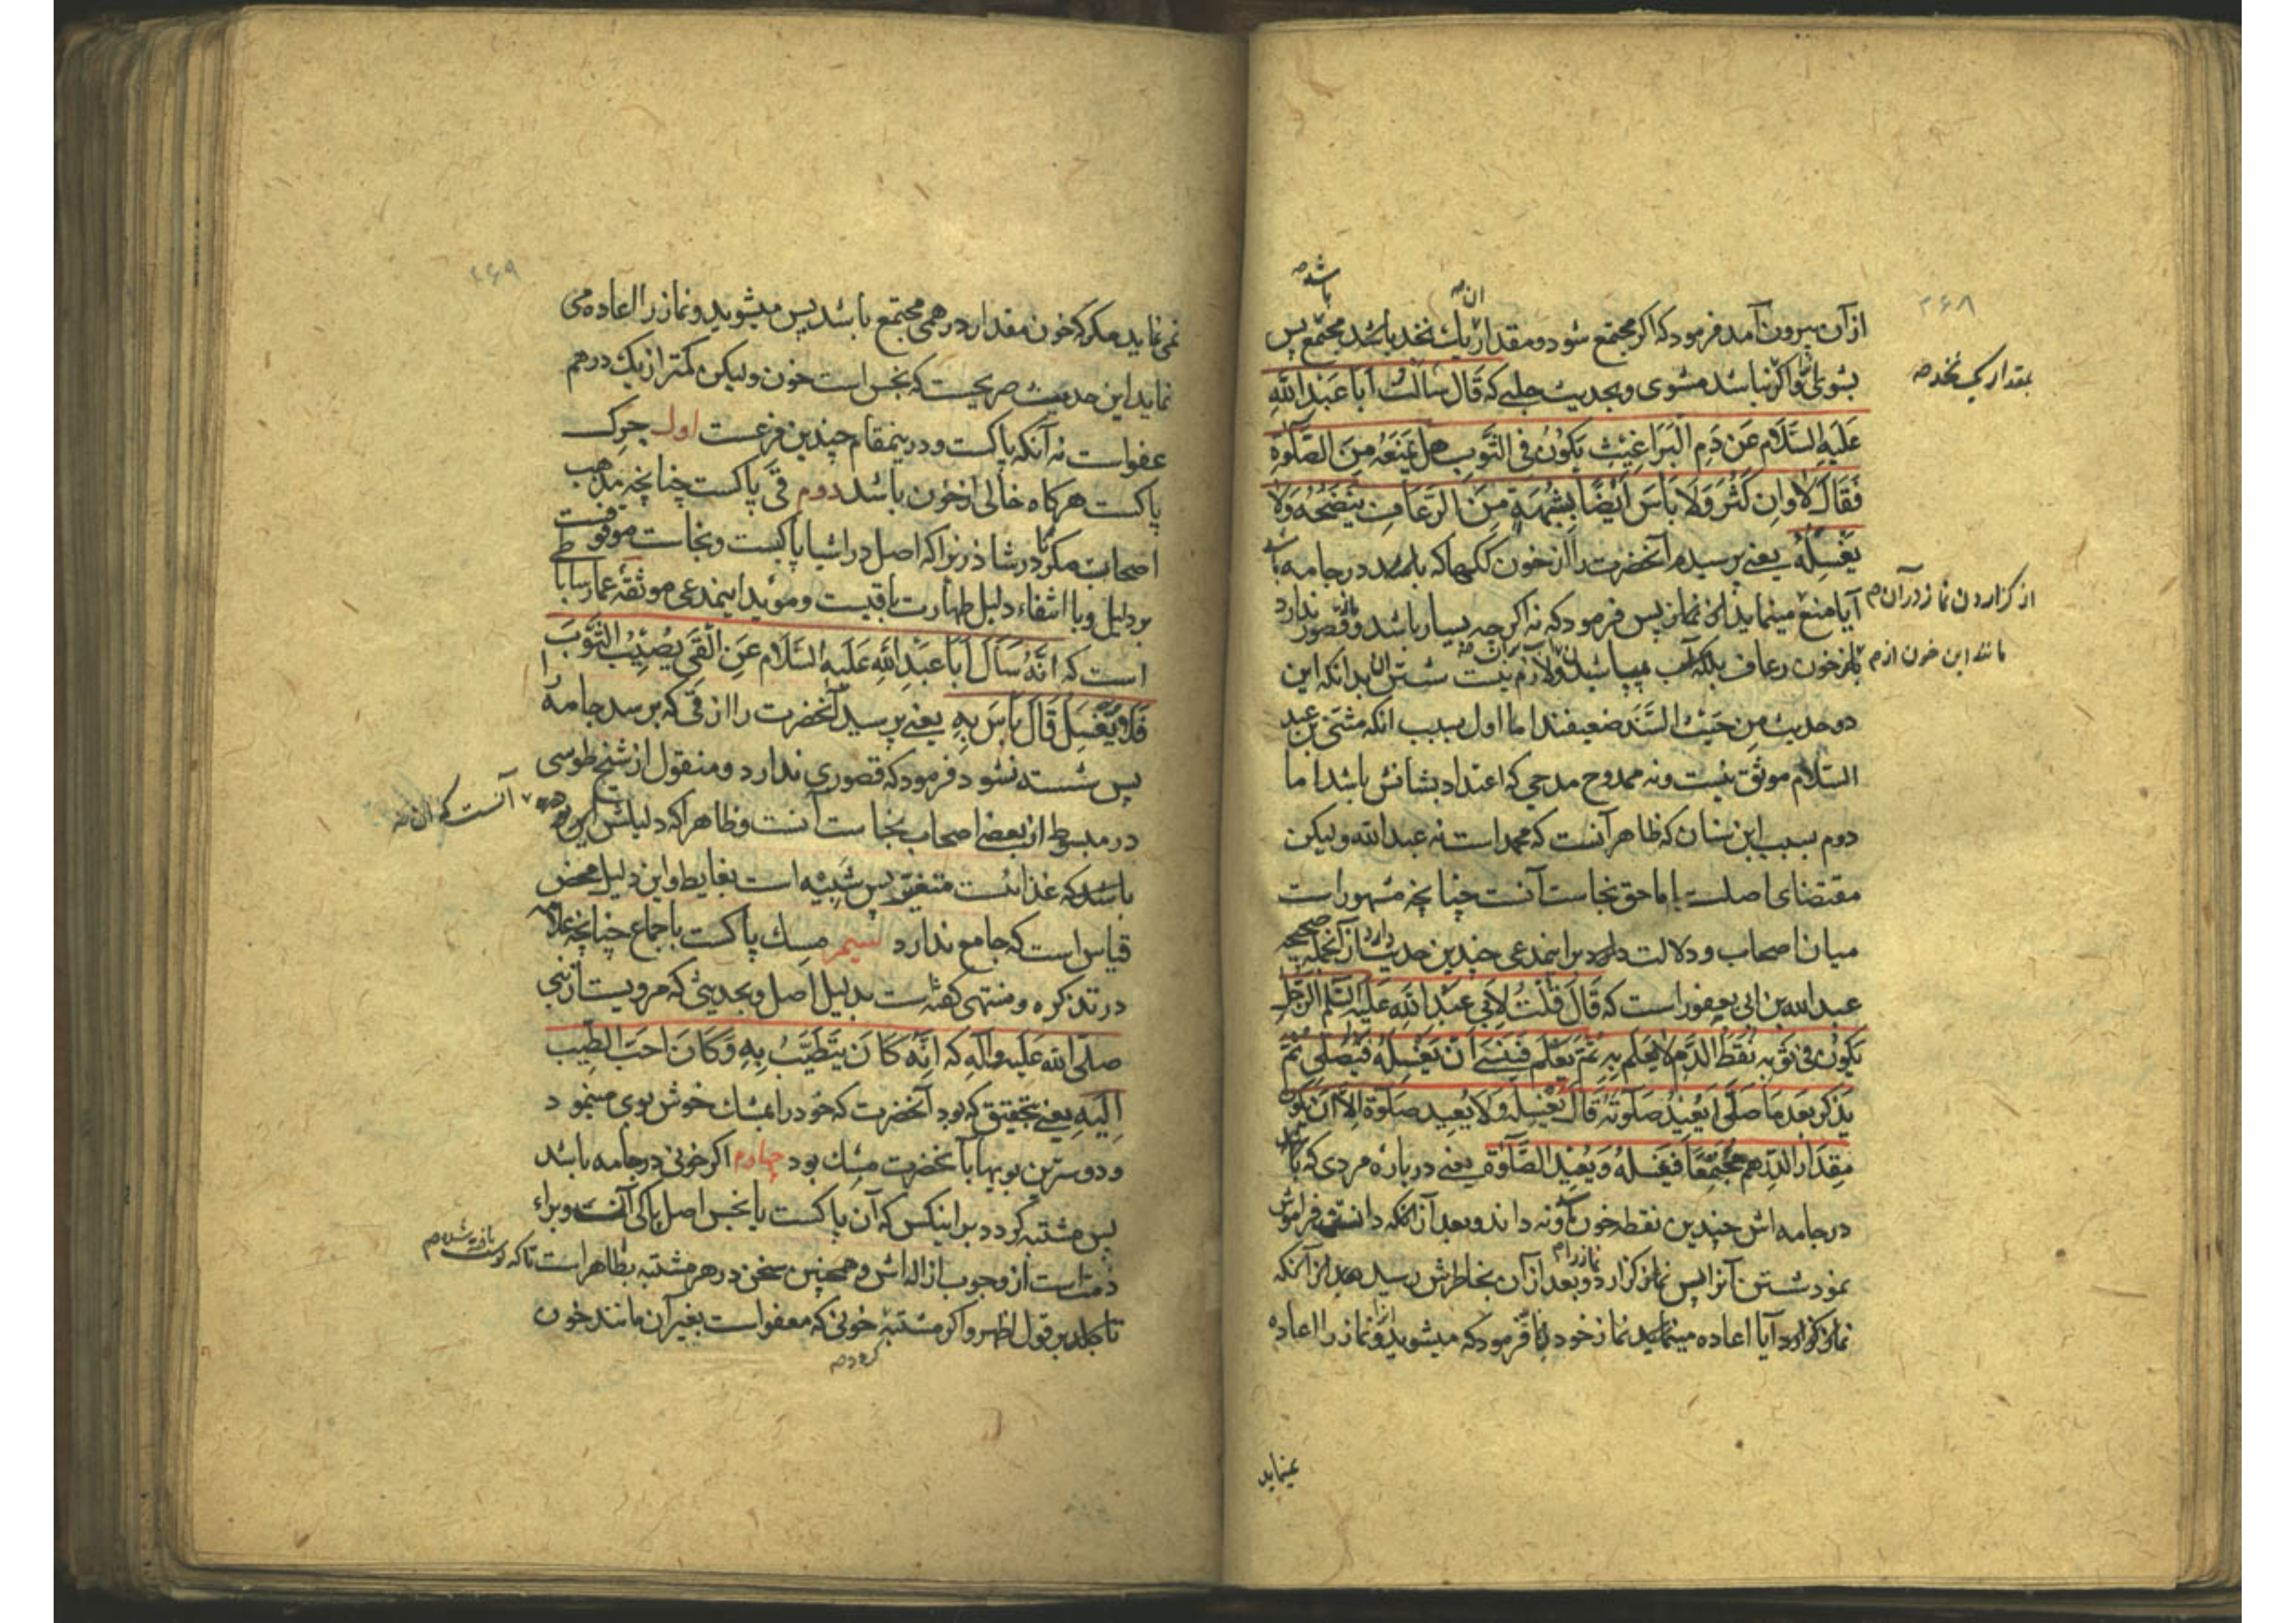 ۲۶۸
باشد صح
ان صح
از آن بیرون آمد فرمود که اگر مجتمع شود و مقدار یک نخد باشد مجتمع پس
بمقدار یک نخد صح
بشوی آنرا و اگر نباشد مشوی و بحدیث حلبی که قَالَ سَاَلتُ اَبا عَبدِ اللّهِ
عَلَیهِ السَّلام عَن دَمِ البَراغیثِ یَکونُ فِی الثَّوبِ هل یَمنَعُهُ مِنَ الصَّلوةِ
فَقَالَ لا وان کَثُرَ وَلا بَاسَ اَیضًا بِشِبهِهِ مِنَ الرَّعافِ یَنضَحُهُ وَلا
یَغسِلُهُ یعنی پرسیدم آنحضرت را از خون ککها که باشد در جامه
آیا منع مینماید از نماز پس فرمود که نه اگرچه بسیار باشد و قصور ندارد
از گزاردن نماز در آن م
مانند این خون از م
خون رعاف بلکه آب میپاشد و لازم نیست شستن آن بدانکه این
دو حدیث مِن حَیثُ السَّنَد ضعیفند اما اول بسبب انکه مثنی بن عبد
السّلام موثق نیست و نه ممدوح مدحی که اعتداد بشانش باشد اما
دوم بسبب ابن سنان که ظاهر آنست که محمد است نه عبد الله ولیکن
مقتضای اصلست اما حق نجاست آنست چنانچه مشهور است
میان اصحاب و دلالت دارد بر اینمدعی چندین حدیث از آنجمله صحیحه
عبد الله بن ابی یعفور است که قَالَ قُلتُ لِاَبی عَبدِ اللّهِ عَلَیهِ السَّلَم الرَّجُل
یَکونُ فی ثَوبِهِ نُقَطُ الدَّمِ لا یَعلَم بِهِ ثُمَّ یَعلَم فَیَنسی اَن یَغسِلَهُ فَیُصَلّی ثُمَّ
یَذکُر بَعدَ مَا صَلَّی اَیُعیدُ صَلوتَهُ قَالَ یَغسِلهُ وَلا یُعید صَلَوة اِلّا اَن یَکون
مِقدَار الدِّرهمِ مُجتَمِعًا فَیَغسِلهُ وَیُعید الصَّلَوةَ یعنی در باره مردی که باشد
در جامه اش چندین نقطه خون و نه داند و بعد از آنکه دانستن فراموش
نمود شستن آنرا پس نماز گزارد و بعد از آن بخاطرش رسید بعد از آنکه
نماز گزارد آیا اعاده مینماید نماز خود را فرمود که میشوید و نماز را اعاده
نمینماید
۲۶۹
نمی نماید مگر که خون مقدار درهمی مجتمع باشد پس میشوید و نماز را اعاده می
نماید این حدیث صریحست که نجس است خون ولیکن کمتر از یک درهم
عفو است نه آنکه پاکست و در ینمقام چندین فرعست اول چرک
پاکست هرگاه خالی از خون باشد دوم قی پاکست چنانچه مذهب
اصحابست مگر در شاذ زیرا که اصل در اشیا پاکیست و نجاست موقوفست
بر دلیل و با انتفاء دلیل طهارت باقیست و موید اینمدعی موثقه عمار ساباطی
است که اَنَّهُ سَاَلَ اَبَا عَبدِ اللّهِ عَلَیهِ السَّلام عَنِ القَی یُصیبُ الثَّوبَ
فَلا یُغسَل قَالَ لا بَاسَ بِهِ یعنی پرسید آنحضرت را از قی که برسد جامه را
پس شسته نشود فرمود که قصوری ندارد و منقول از شیخ طوسی
در مبسوط از بعضی اصحاب نجاست آنست و ظاهرا که دلیلش این بود
آنست که ان صح
باشد که غذائست متغیر پس شبیه است بغایط و این دلیل محض
قیاس است که جامع ندارد سیم مسک پاکست باجماع چنانچه علامه
در تذکره و منتهی گفته است بدلیل اصل و بحدیثی که مرویست از نبی
صلی الله عَلَیه و آله که اِنَّهُ کَانَ یَتَطَیَّبُ بِهِ وَ کَانَ اَحَبَّ الطّیب
اِلَیهِ یعنی بتحقیق که بود آنحضرت که خود را بمشک خوش بوی مینمود
و دوسترین بویها بآنحضرت مشک بود چهارم اگر خونی در جامه باشد
پس مشتبه گردد بر اینکس که آن پاکست یا نجس اصل پاکی آنست و براء
ذمت است از وجوب ازاله اش و همچنین سخن در هر مشتبه بطاهر است تا که پوست
تا بجلد بر قول اظهر و اگر مشتبه خونی که معفو است بغیر آن مانند خون
گردد صح